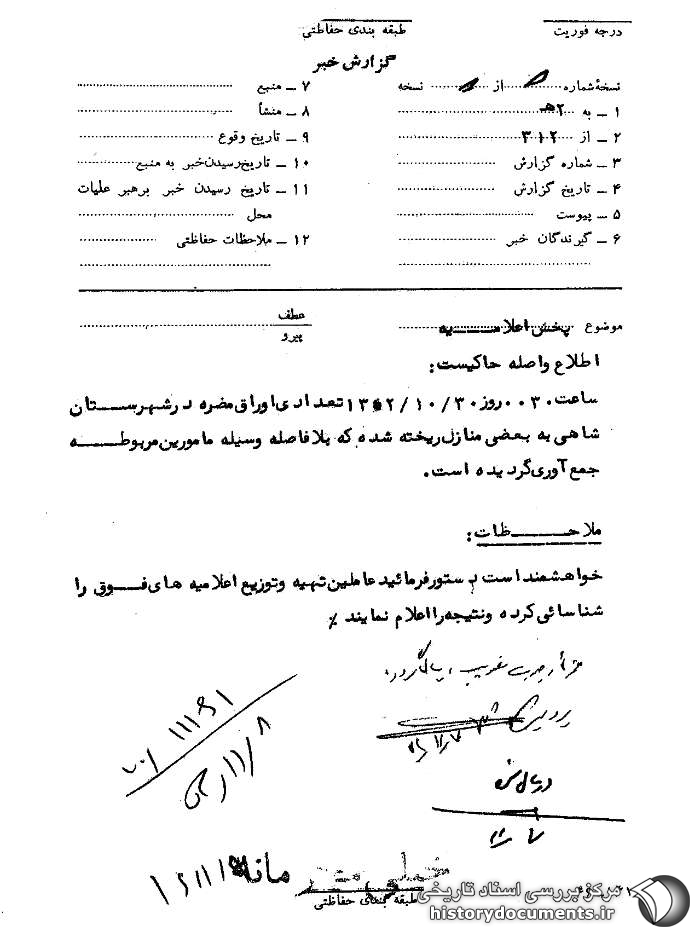 درجه فوریت
طبقه بندی حفاظتی
گزارش خبر
نسخهٔ شماره از نسخه
۱ ــ به ۲هـ
۲ ــ از ۳۱۲
۳ ــ شماره گزارش
۴ ــ تاریخ گزارش
۵ ــ پیوست
۶ ــ گیرندگان خبر
۷ ــ منبع
۸ ــ منشأ
۹ ــ تاریخ وقوع
۱۰ ــ تاریخ رسیدن خبر به منبع
۱۱ ــ تاریخ رسیدن خبر برهبر عملیات
محل
۱۲ ــ ملاحظات حفاظتی
موضوع پخش اعلامیه
عطف
پیرو
اطلاع واصله حاکیست:
ساعت ۰۰۳۰ روز ۱۰/۳۰/ تعدادی اوراق مضره در شهرستان
شاهی به بعضی منازل ریخته شده که بلافاصله وسیله مامورین مربوطه
جمع آوری گردیده است.
ملاحظات:
خواهشمند است دستور فرمائید عاملین تهیه و توزیع اعلامیه های فوق را
شناسائی کرده و نتیجه را اعلام نمایند ٪
خیلی محرمانه
طبقه بندی حفاظتی
مرکز بررسی اسناد تاریخی
historydocuments.ir